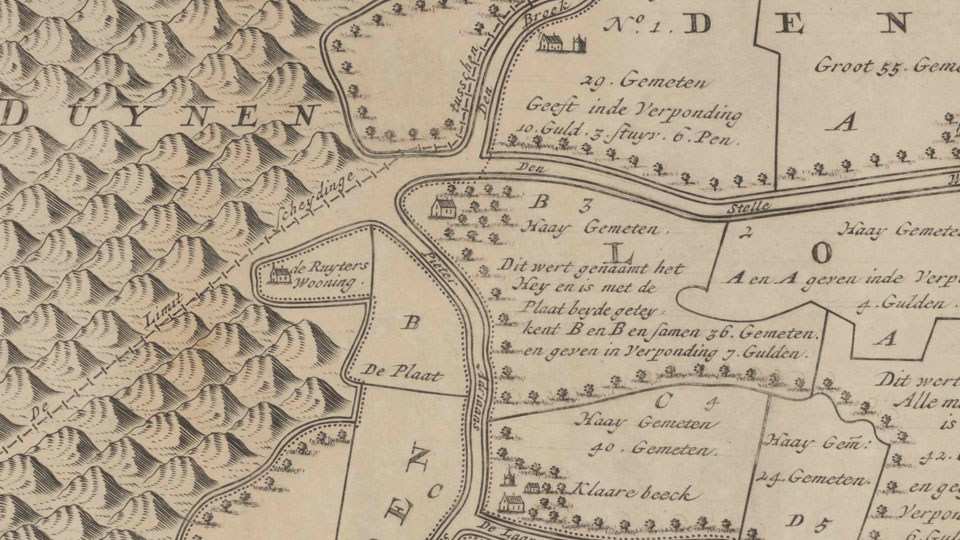 DUYNEN
De Limit Scheydinge tusschen Den Broek
Nº. 1.
29. Gemeten
Geeft inde Verponding
10. Guld. 3. stuyv. 6. Pen.
DEN
Groot 55. Geme
A
Den Stelle W
B 3
Haay Gemeten.
L O
Dit wert genaamt het
Hey en is met de
Plaat beyde getey,
kent B en B en samen 36. Gemeten.
en geven in Verponding 7. Gulden.
2
Haay Gemeten
A en A geven inde Verp
4. Gulden
A
de Ruyters
Wooning.
B
De Plaat
Pieter Adriaans
C 4
Haay Gemeten
40. Gemeten.
Klaare beeck
Haay Gem:
24. Gemeten.
D 5
Dit wert
Alle m
is
42. 
en ge
Verpon
6. Gul
EN
C
De Laan